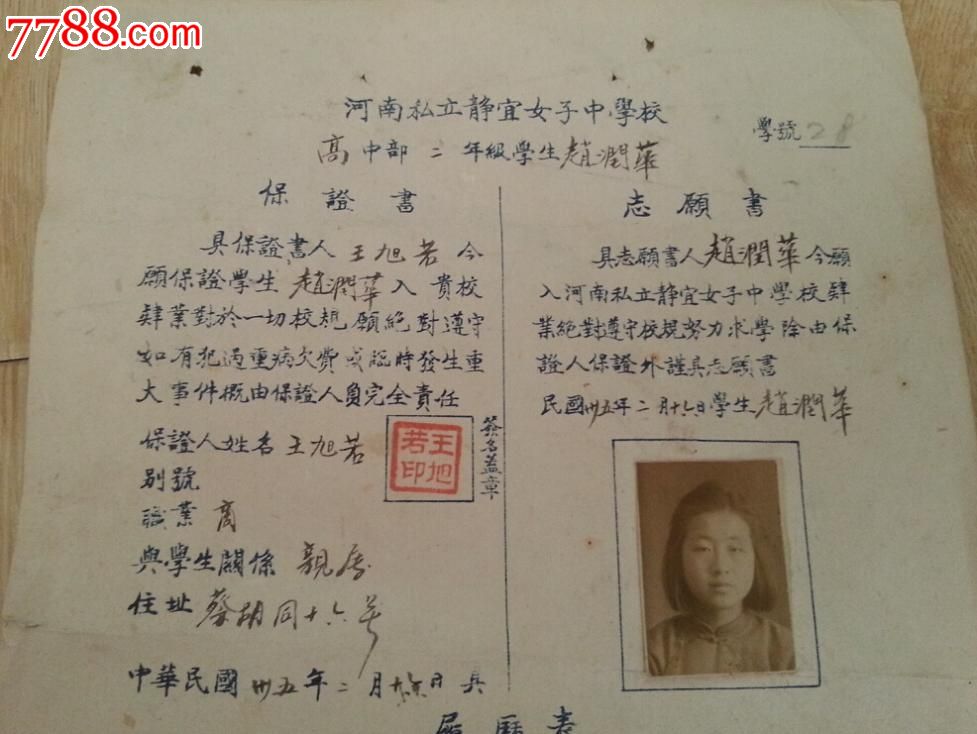 7788.com
河南私立静宜女子中學校
學號 28
高中部 二 年級學生趙潤華
保證書
具保證書人 王旭若 今
願保證學生 趙潤華 入 貴校
肄業對於一切校規願絕對遵守
如有犯過重病欠費或臨時發生重
大事件概由保證人負完全責任
保證人姓名 王旭若
王旭若印
簽名蓋章
別號
職業 商
與學生關係 親
住址 蔡胡同十六号
中華民國 卅五年 二 月 日 具
志願書
具志願書人趙潤華今願
入河南私立静宜女子中學校肄
業絕對遵守校規努力求學除由保
證人保證外謹具志願書
民國卅五年二月十六日學生趙潤華
履歷表